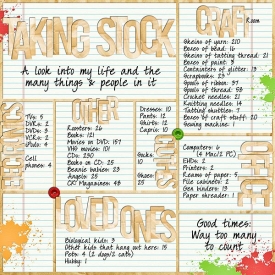 TAKING STOCK
A look into my life and the
many things & people in it
CRAFT Room
Skeins of yarn: 210
Boxes of bead: 16
Skeins of tatting thread: 21
Boxes of paint: 3
Containers of glitter: 13
Scrapbooks: 23
Spools of ribbon: 57
Spools of thread: 58
Crochet needles: 21
Knitting needles: 14
Tatting shuttles: 7
Boxes of craft stuff: 20
Sewing machine: 1
TVs: 5
DVRs: 2
DVDs: 3
VCRs: 2
iPods: 4
Cell
phones: 4
OTHER
Roosters: 26
Books: 121
Movies on DVD: 157
VHS movies: 101
CDs: 230
Books on CD: 25
Beanie babies: 23
Angels: 25
CK Magazines: 48
Dresses: 10
Pants: 12
Shirts: 12
Capris: 10
Computers: 6
(4 Mac/2 PC)
EHDs: 2
Printers: 2
Reams of paper: 5
File cabinets: 2
Gem binders: 13
Paper shredder: 1
LOVED ONES
Biological kids: 3
Other kids that hang out here: 15
Pets: 4 (2 dogs/2 cats)
Hubby: 1
Good times:
Way too many
to count